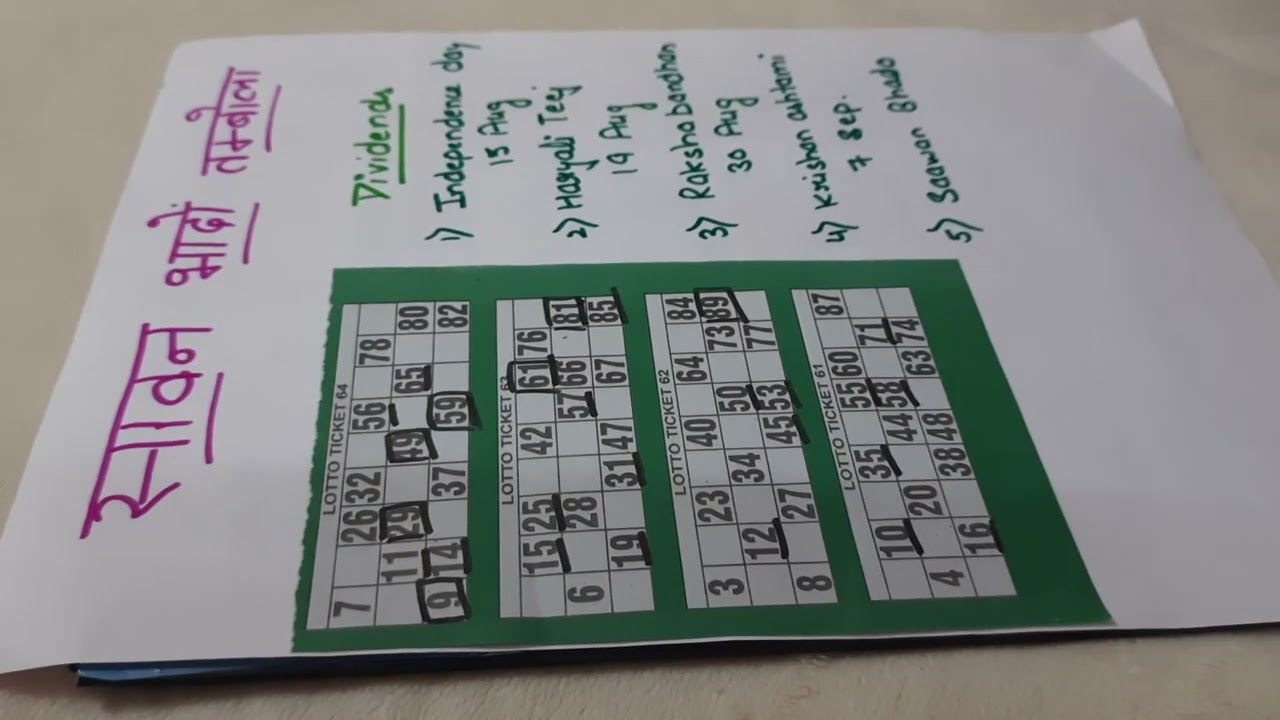 सावन भादों तम्बोला
LOTTO TICKET 64
7 26 32 56 78
11 29 49 65 80
9 14 37 59 82
LOTTO TICKET 63
15 25 42 61 76
6 28 57 66 81
19 31 47 67 85
LOTTO TICKET 62
3 23 40 64 84
12 34 50 73 89
8 27 45 53 77
LOTTO TICKET 61
10 35 55 60 87
4 20 44 58 71
16 38 48 63 74
Dividends
1) Independence day
15 Aug
2) Haryali Teej
19 Aug
3) Rakshabandhan
30 Aug
4) Krishan ashtami
7 Sep.
5) Saawan Bhado